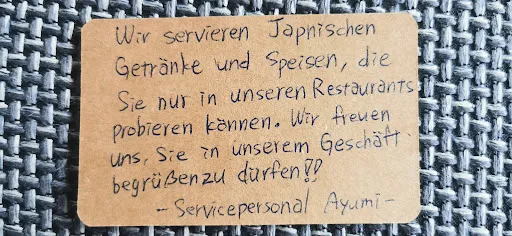 Wir servieren Japnischen
Getränke und Speisen, die
Sie nur in unseren Restaurants
probieren können. Wir freuen
uns, Sie in unserem Geschäft
begrüßen zu dürfen!!
- Servicepersonal Ayumi -